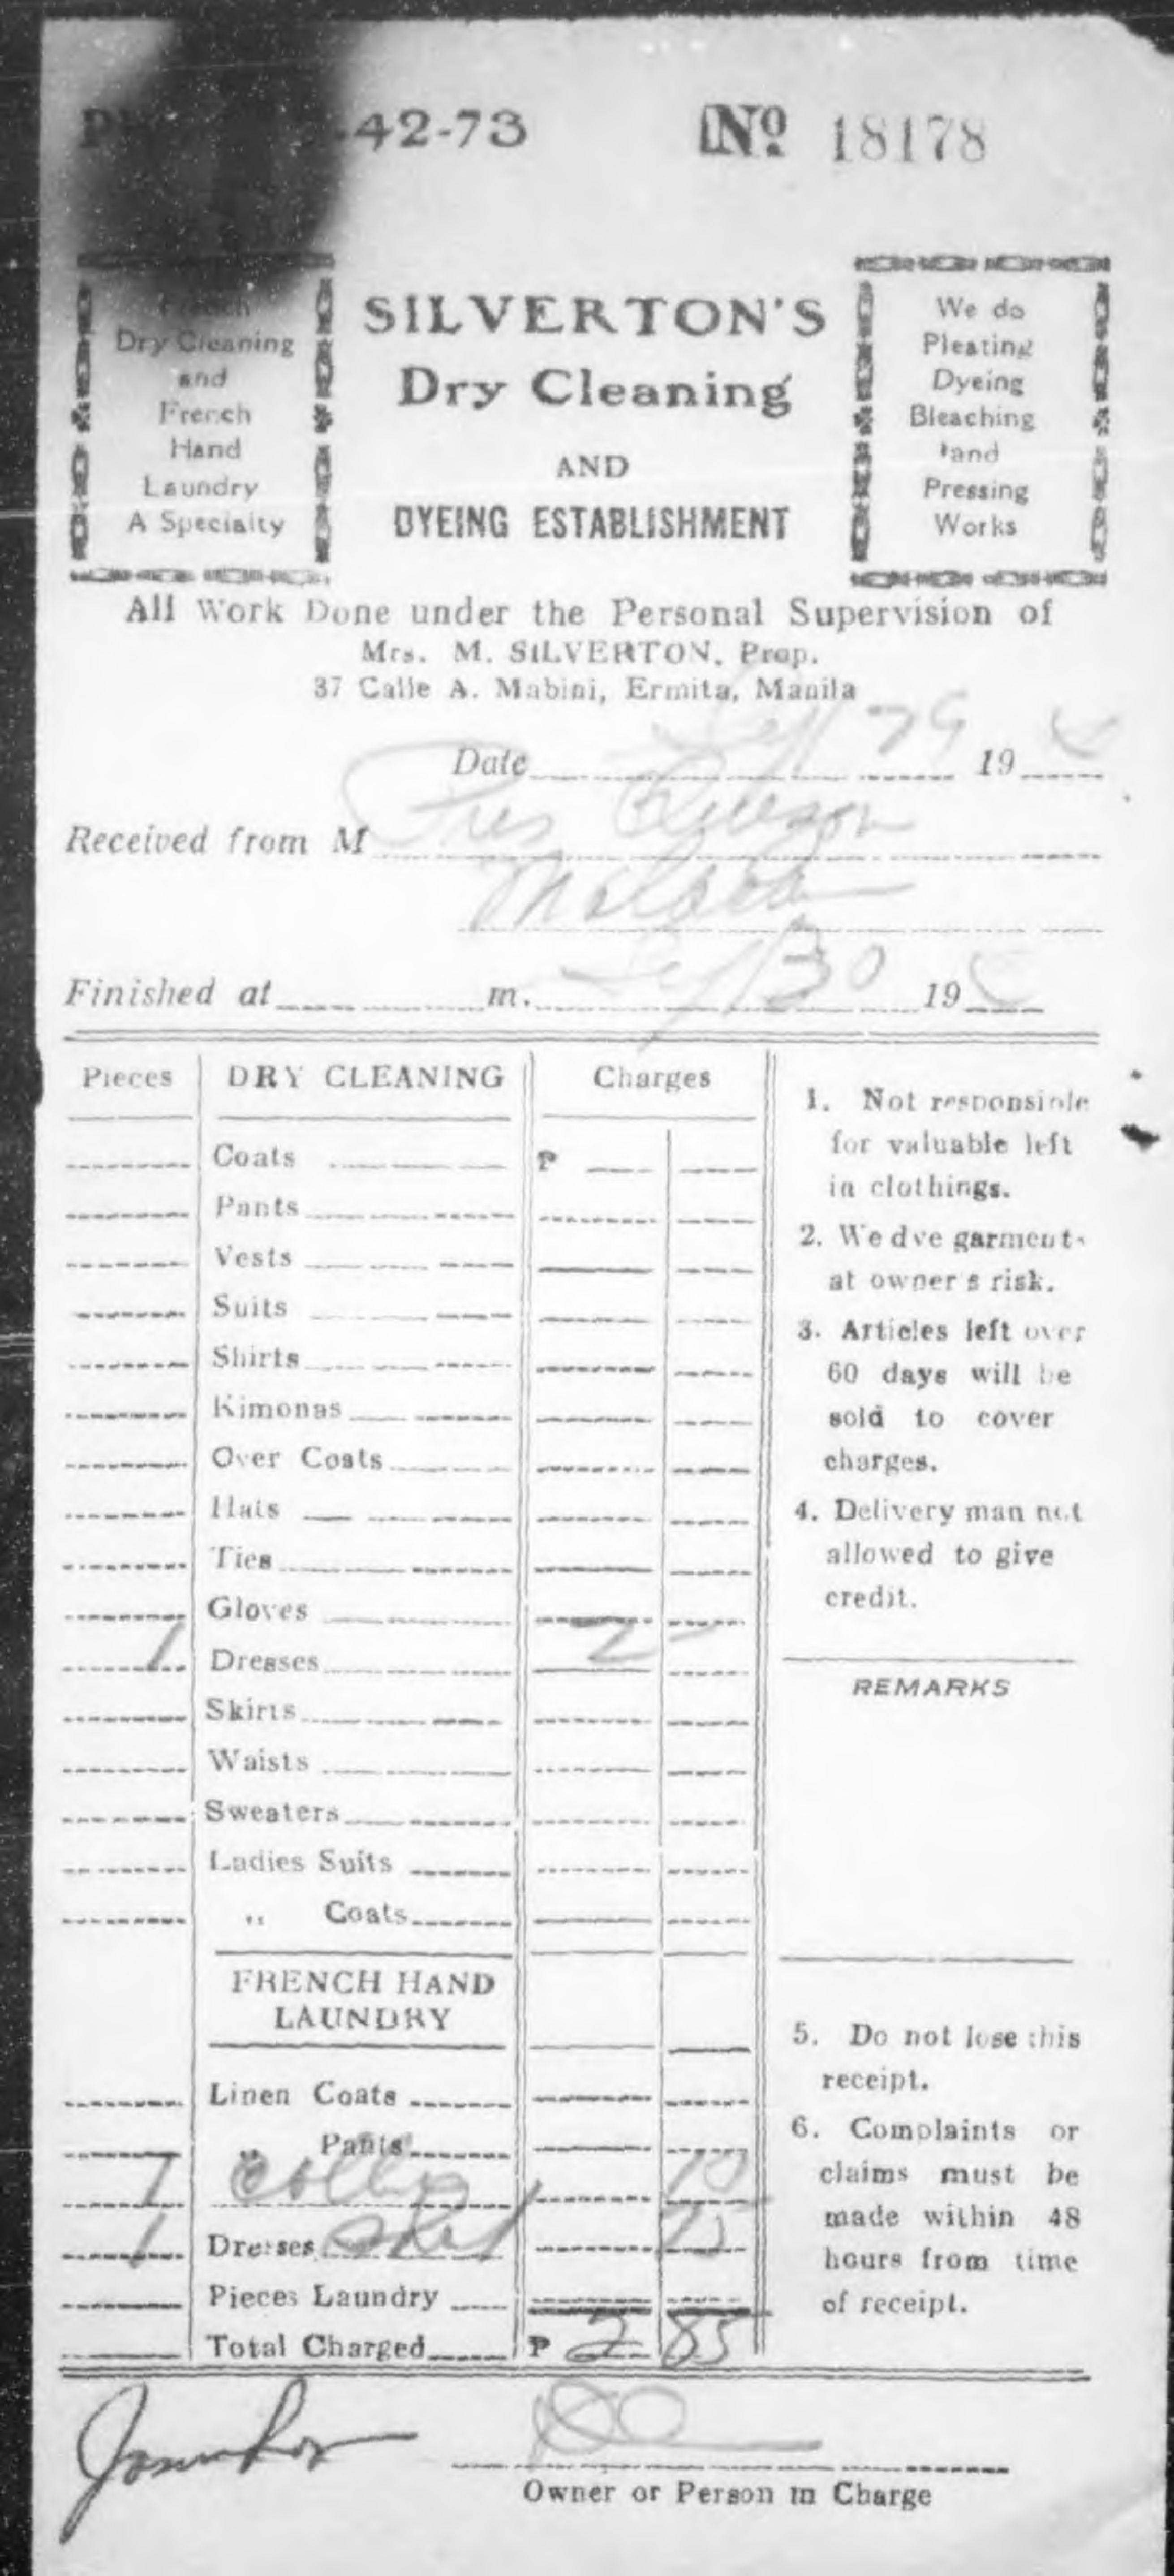 -42-73 Nº 18178
French
Dry Cleaning
and
French
Hand
Laundry
A Specialty
SILVERTON'S
Dry Cleaning
AND
DYEING ESTABLISHMENT
We do
Pleating
Dyeing
Bleaching
and
Pressing
Works
All Work Done under the Personal Supervision of
Mrs. M. SILVERTON, Prop.
37 Calle A. Mabini, Ermita, Manila
Date 19
Received from M
Finished at m. Sept 30 19
Pieces DRY CLEANING Charges
Coats ₱
Pants
Vests
Suits
Shirts
Kimonas
Over Coats
Hats
Ties
Gloves
1 Dresses 2 -
Skirts
Waists
Sweaters
Ladies Suits
,, Coats
FRENCH HAND
LAUNDRY
Linen Coats
,, Pants
1 10
1 Dresses 75
Pieces Laundry
Total Charged ₱ 2 85
1. Not responsible
for valuable left
in clothings.
2. We dye garments
at owner s risk.
3. Articles left over
60 days will be
sold to cover
charges.
4. Delivery man not
allowed to give
credit.
REMARKS
5. Do not lose this
receipt.
6. Complaints or
claims must be
made within 48
hours from time
of receipt.
Owner or Person in Charge